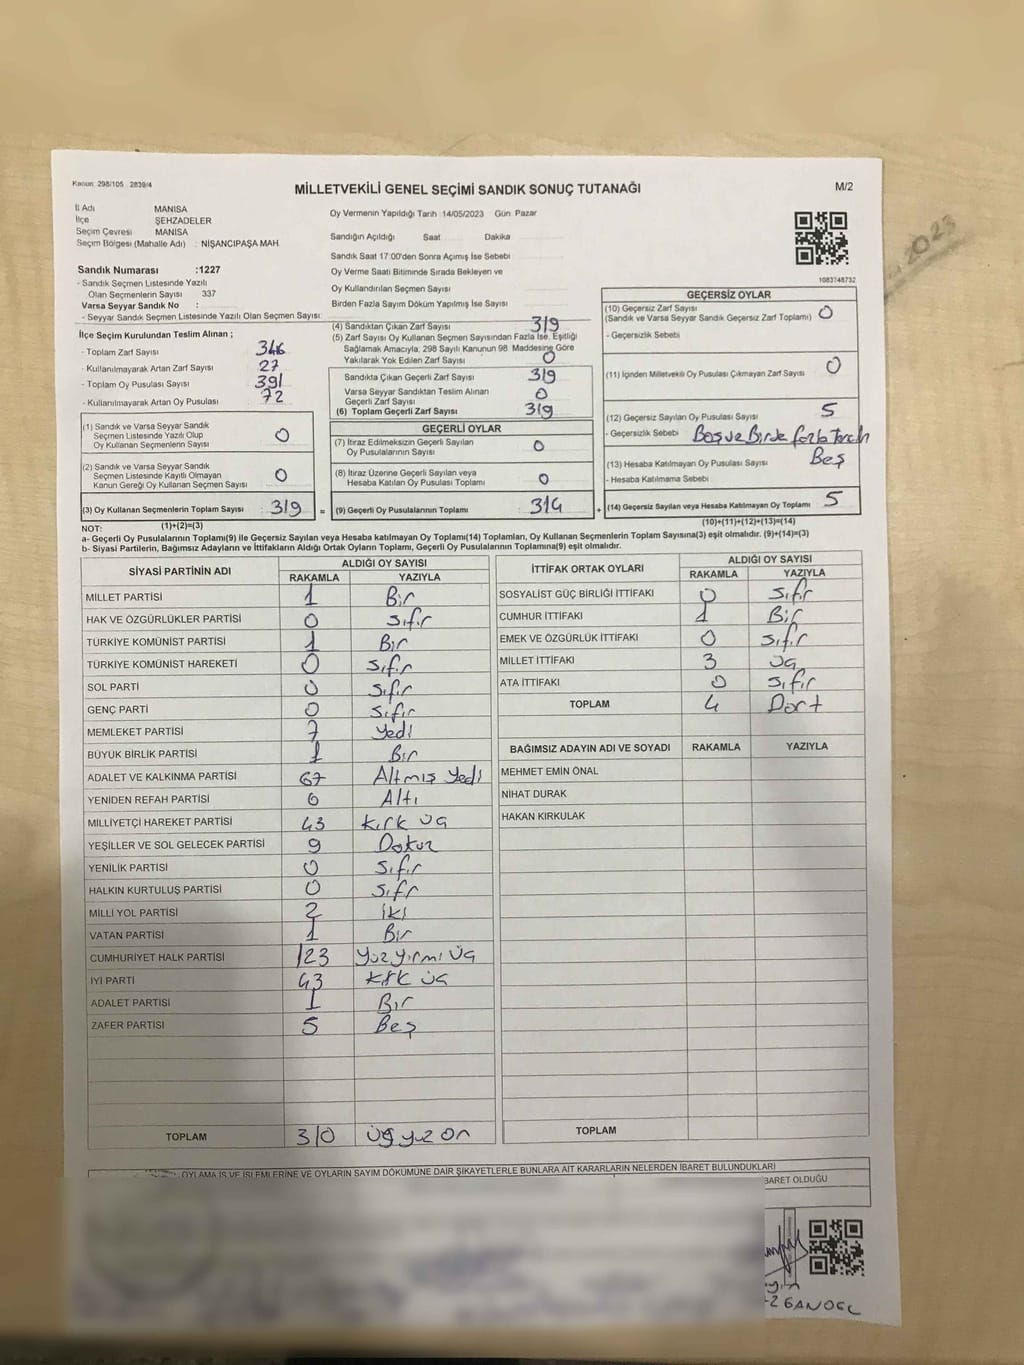 Kanun 298/105 2839/4
MİLLETVEKİLİ GENEL SEÇİMİ SANDIK SONUÇ TUTANAĞI
M/2
İl Adı MANİSA
İlçe ŞEHZADELER
Seçim Çevresi MANİSA
Seçim Bölgesi (Mahalle Adı) : NİŞANCIPAŞA MAH.
Sandık Numarası :1227
- Sandık Seçmen Listesinde Yazılı
Olan Seçmenlerin Sayısı 337
Varsa Seyyar Sandık No :
- Seyyar Sandık Seçmen Listesinde Yazılı Olan Seçmen Sayısı:
Oy Vermenin Yapıldığı Tarih 14/05/2023 Gün Pazar
Sandığın Açıldığı Saat Dakika
Sandık Saat 17:00'den Sonra Açımış İse Sebebi
Oy Verme Saati Bitiminde Sırada Bekleyen ve
Oy Kullandırılan Seçmen Sayısı
Birden Fazla Sayım Döküm Yapılmış İse Sayısı
1083748732
2023
İlçe Seçim Kurulundan Teslim Alınan ;
- Toplam Zarf Sayısı 346
- Kullanılmayarak Artan Zarf Sayısı 27
- Toplam Oy Pusulası Sayısı 391
- Kullanılmayarak Artan Oy Pusulası 72
(1) Sandık ve Varsa Seyyar Sandık
Seçmen Listesinde Yazılı Olup
Oy Kullanan Seçmenlerin Sayısı 0
(2) Sandık ve Varsa Seyyar Sandık
Seçmen Listesinde Kayıtlı Olmayan
Kanun Gereği Oy Kullanan Seçmen Sayısı 0
(3) Oy Kullanan Seçmenlerin Toplam Sayısı 319 =
(4) Sandıktan Çıkan Zarf Sayısı 319
(5) Zarf Sayısı Oy Kullanan Seçmen Sayısından Fazla İse, Eşitliği
Sağlamak Amacıyla; 298 Sayılı Kanunun 98. Maddesine Göre
Yakılarak Yok Edilen Zarf Sayısı 0
Sandıkta Çıkan Geçerli Zarf Sayısı 319
Varsa Seyyar Sandıktan Teslim Alınan
Geçerli Zarf Sayısı 0
(6) Toplam Geçerli Zarf Sayısı 319
GEÇERLİ OYLAR
(7) İtiraz Edilmeksizin Geçerli Sayılan
Oy Pusulasının Sayısı 0
(8) İtiraz Üzerine Geçerli Sayılan veya
Hesaba Katılan Oy Pusulası Toplamı 0
(9) Geçerli Oy Pusulalarının Toplamı 314 +
GEÇERSİZ OYLAR
(10) Geçersiz Zarf Sayısı 0
(Sandık ve Varsa Seyyar Sandık Geçersiz Zarf Toplamı)
- Geçersizlik Sebebi
(11) İçinden Milletvekili Oy Pusulası Çıkmayan Zarf Sayısı 0
(12) Geçersiz Sayılan Oy Pusulası Sayısı 5
- Geçersizlik Sebebi Boş ve Birde fazla tercih
(13) Hesaba Katılmayan Oy Pusulası Sayısı Beş
- Hesaba Katılmama Sebebi
(14) Geçersiz Sayılan veya Hesaba Katılmayan Oy Toplamı 5
NOT: (1)+(2)=(3) (10)+(11)+(12)+(13)=(14)
a- Geçerli Oy Pusulalarının Toplamı(9) ile Geçersiz Sayılan veya Hesaba katılmayan Oy Toplamı(14) Toplamları, Oy Kullanan Seçmenlerin Toplam Sayısına(3) eşit olmalıdır. (9)+(14)=(3)
b- Siyasi Partilerin, Bağımsız Adayların ve İttifakların Aldığı Ortak Oyların Toplamı, Geçerli Oy Pusulalarının Toplamına(9) eşit olmalıdır.
SİYASİ PARTİNİN ADI ALDIĞI OY SAYISI
RAKAMLA YAZIYLA
MİLLET PARTİSİ 1 Bir
HAK VE ÖZGÜRLÜKLER PARTİSİ 0 sıfır
TÜRKİYE KOMÜNİST PARTİSİ 1 Bir
TÜRKİYE KOMÜNİST HAREKETİ 0 sıfır
SOL PARTİ 0 sıfır
GENÇ PARTİ 0 sıfır
MEMLEKET PARTİSİ 7 Yedi
BÜYÜK BİRLİK PARTİSİ 1 Bir
ADALET VE KALKINMA PARTİSİ 67 Altmış Yedi
YENİDEN REFAH PARTİSİ 6 Altı
MİLLİYETÇİ HAREKET PARTİSİ 43 Kırk üç
YEŞİLLER VE SOL GELECEK PARTİSİ 9 Dokuz
YENİLİK PARTİSİ 0 sıfır
HALKIN KURTULUŞ PARTİSİ 0 sıfr
MİLLİ YOL PARTİSİ 2 İki
VATAN PARTİSİ 1 Bir
CUMHURİYET HALK PARTİSİ 123 Yüz yirmi üç
İYİ PARTİ 43 Kırk üç
ADALET PARTİSİ 1 Bir
ZAFER PARTİSİ 5 Beş
TOPLAM 310 üç yüz on
İTTİFAK ORTAK OYLARI ALDIĞI OY SAYISI
RAKAMLA YAZIYLA
SOSYALİST GÜÇ BİRLİĞİ İTTİFAKI 0 sıfır
CUMHUR İTTİFAKI 1 Bir
EMEK VE ÖZGÜRLÜK İTTİFAKI 0 sıfır
MİLLET İTTİFAKI 3 üç
ATA İTTİFAKI 0 sıfır
TOPLAM 4 Dört
BAĞIMSIZ ADAYIN ADI VE SOYADI RAKAMLA YAZIYLA
MEHMET EMİN ÖNAL
NİHAT DURAK
HAKAN KIRKULAK
TOPLAM
OYLAMA İŞ VE İŞLEMLERİNE VE OYLARIN SAYIM DÖKÜMÜNE DAİR ŞİKAYETLERLE BUNLARA AİT KARARLARIN NELERDEN İBARET BULUNDUKLARI
BARET OLDUĞU